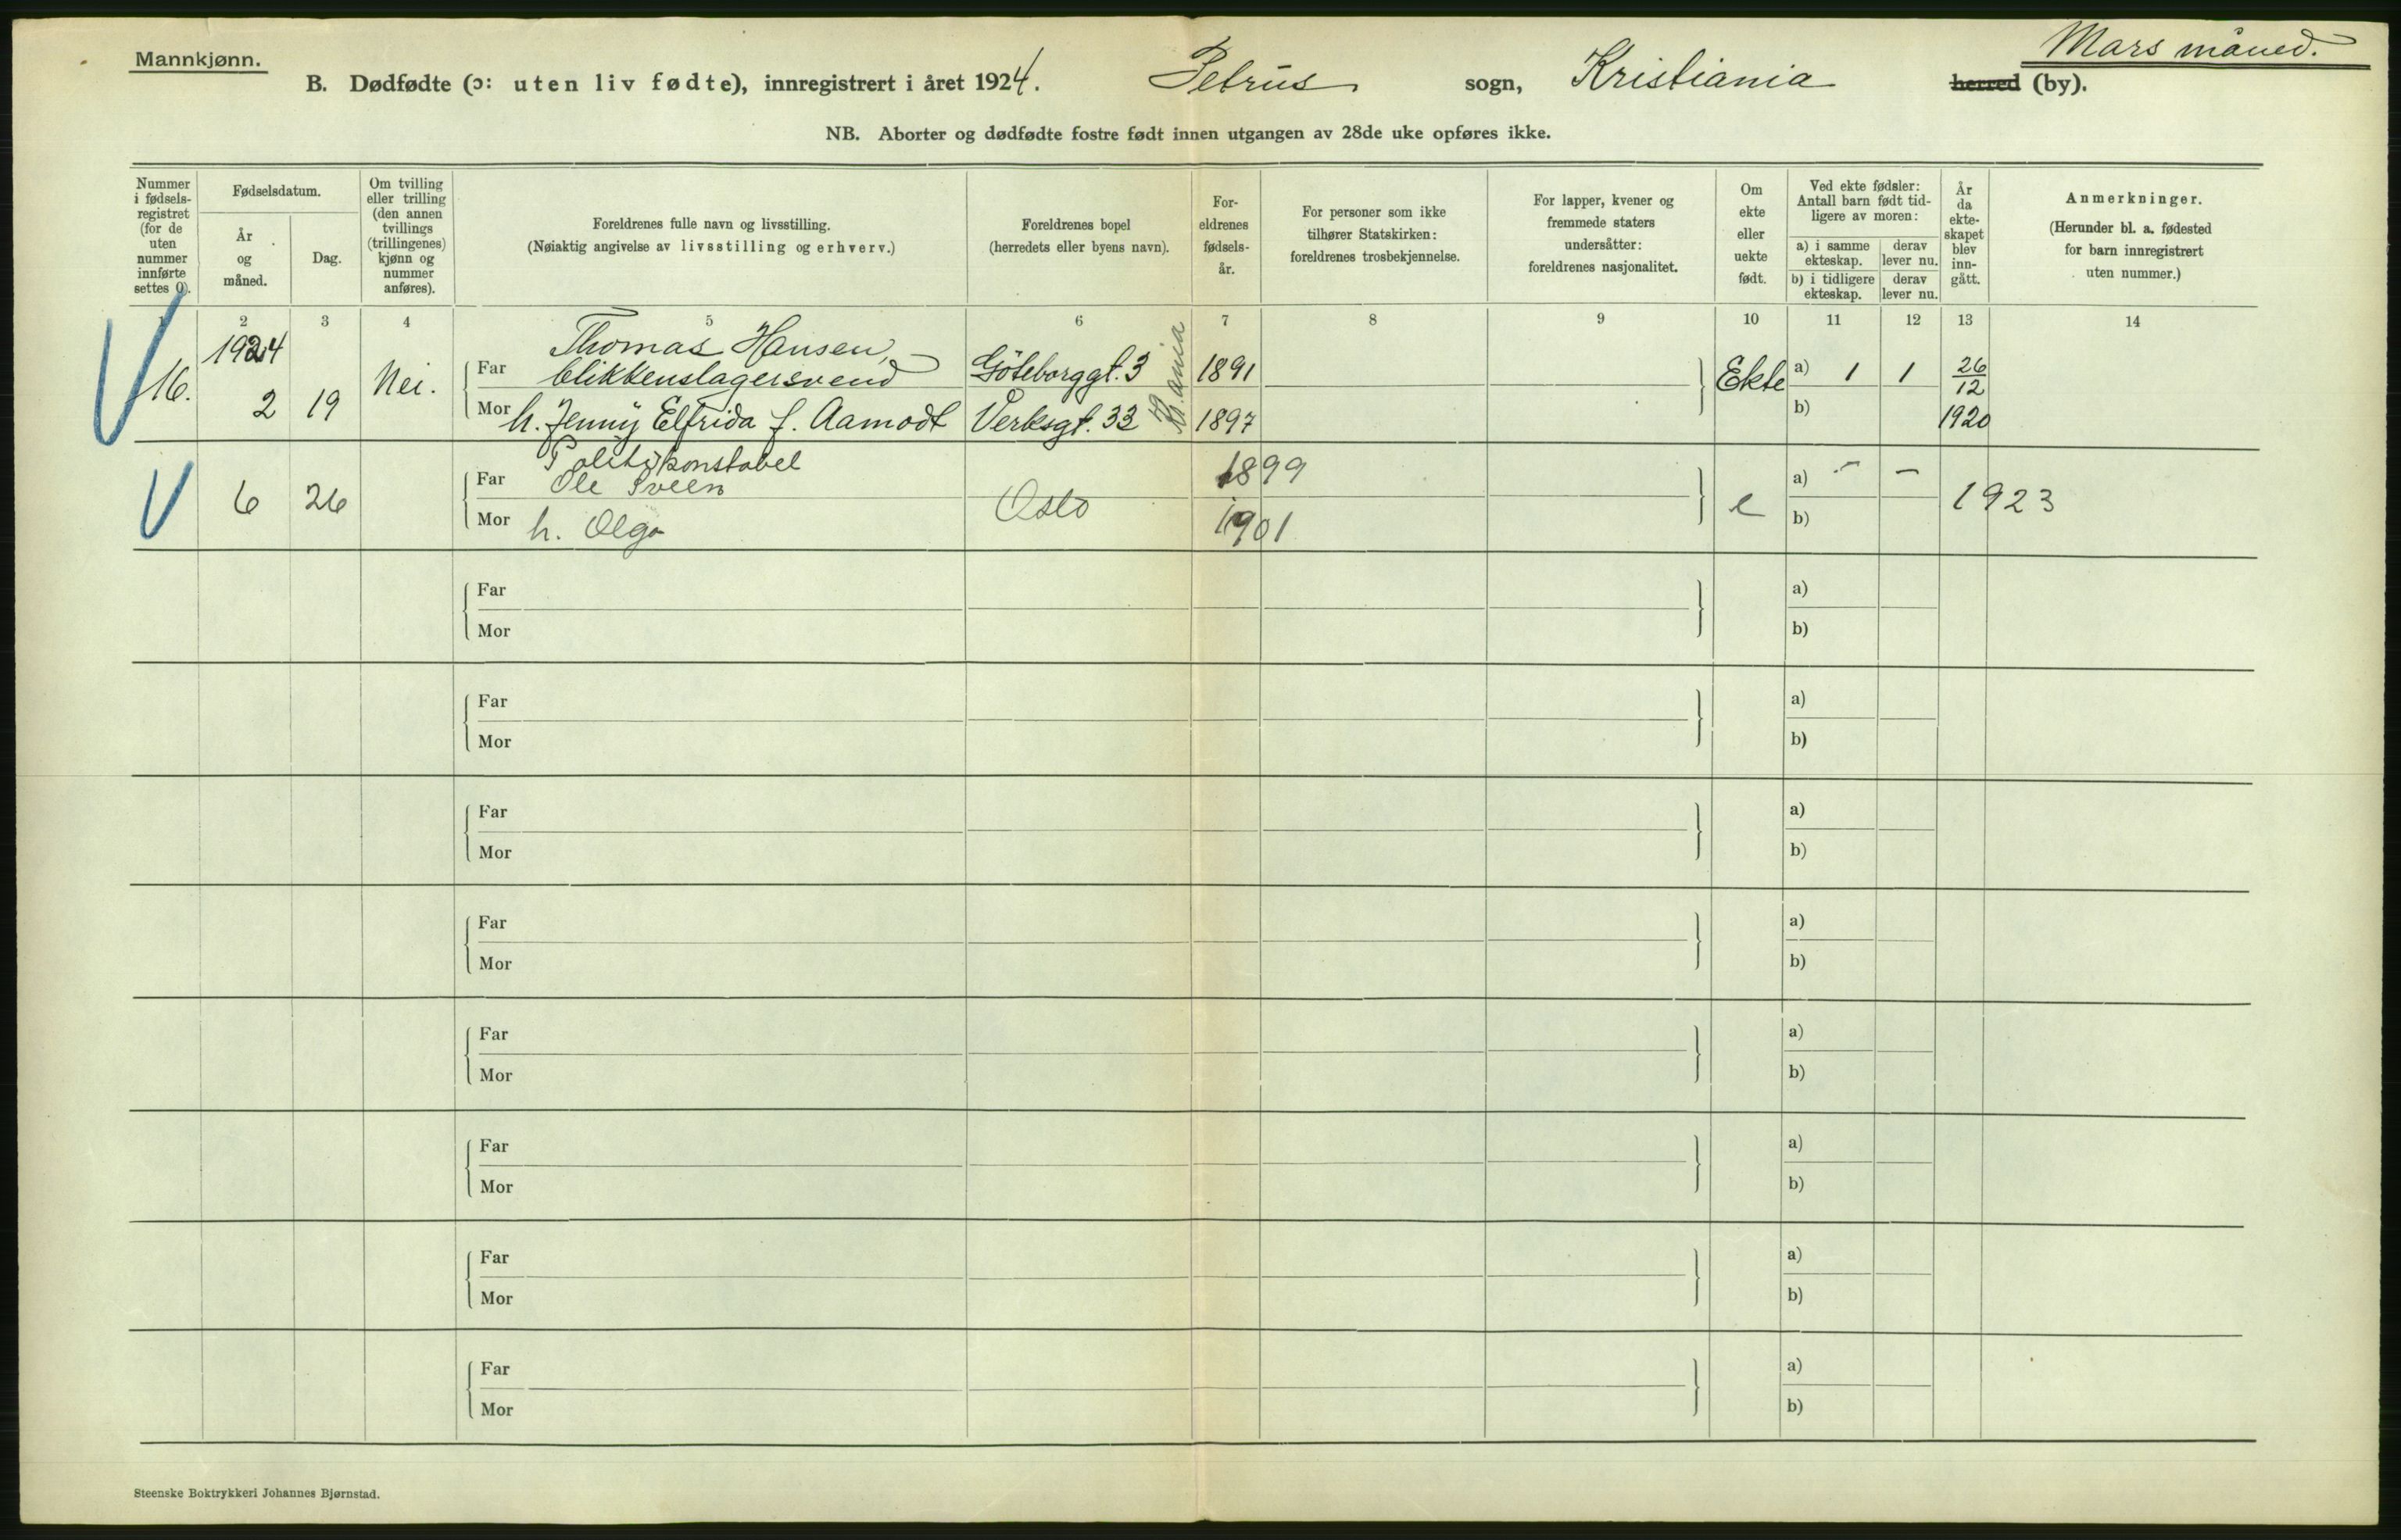 Mannkjønn.
Mars måned.
B. Dødfødte (ɔ: uten liv fødte), innregistrert i året 1924. Petrus sogn, Kristiania herred (by).
NB. Aborter og dødfødte fostre født innen utgangen av 28de uke opføres ikke.
Nummer i fødsels-registret (for de uten nummer innførte settes 0).
Fødselsdatum.
År og måned.
Dag.
Om tvilling eller trilling (den annen tvillings (trillingenes) kjønn og nummer anføres).
Foreldrenes fulle navn og livsstilling.
(Nøiaktig angivelse av livsstilling og erhverv.)
Foreldrenes bopel
(herredets eller byens navn).
For-eldrenes fødsels-år.
For personer som ikke tilhører Statskirken: foreldrenes trosbekjennelse.
For lapper, kvener og fremmede staters undersåtter: foreldrenes nasjonalitet.
Om ekte eller uekte født.
Ved ekte fødsler: Antall barn født tid-ligere av moren:
a) i samme ekteskap.
derav lever nu.
b) i tidligere ekteskap.
derav lever nu.
År da ekte-skapet blev inn-gått.
Anmerkninger.
(Herunder bl. a. fødested for barn innregistrert uten nummer.)
1 2 3 4 5 6 7 8 9 10 11 12 13 14
16. 1924 2 19 Nei.
Far Thomas Hansen, blikkenslagersvend Göteborggt. 3 1891 Ekte a) 1 1 26/12 1920
Mor h. Jenny Elfrida f. Aamodt Verksgt. 33 Kr.ania 1897 b)
6 26
Politikonstabel
Far Ole Sveen Oslo 1899 e a) - - 1923
Mor h. Olga 1901 b)
Far a)
Mor b)
Far a)
Mor b)
Far a)
Mor b)
Far a)
Mor b)
Far a)
Mor b)
Far a)
Mor b)
Far a)
Mor b)
Far a)
Mor b)
Steenske Boktrykkeri Johannes Bjørnstad.